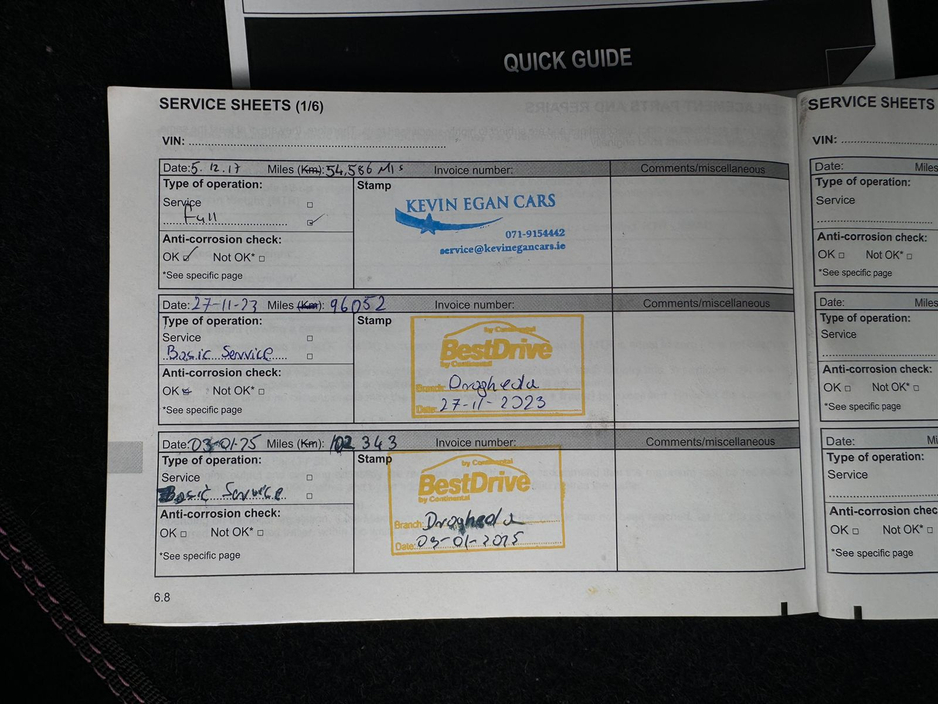 QUICK GUIDE
SERVICE SHEETS (1/6)
VIN:
Date: 5.12.17 Miles (Km): 54,586 MIs Invoice number: Comments/miscellaneous
Type of operation: Stamp
Service
Full
KEVIN EGAN CARS
071-9154442
service@kevinegancars.ie
Anti-corrosion check:
OK Not OK*
*See specific page
Date: 27-11-23 Miles (Km): 96052 Invoice number: Comments/miscellaneous
Type of operation: Stamp
Service
Basic Service
by Continental
BestDrive
by Continental
Branch: Drogheda
Date: 27-11-2023
Anti-corrosion check:
OK Not OK*
*See specific page
Date: 03-01-25 Miles (Km): 102 343 Invoice number: Comments/miscellaneous
Type of operation: Stamp
Service
Basic Service
by Continental
BestDrive
by Continental
Branch: Drogheda
Date: 03-01-2025
Anti-corrosion check:
OK Not OK*
*See specific page
6.8
SERVICE SHEETS
VIN:
Date: Miles
Type of operation:
Service
Anti-corrosion check:
OK Not OK*
*See specific page
Date: Miles
Type of operation:
Service
Anti-corrosion check:
OK Not OK*
*See specific page
Date: Mi
Type of operation:
Service
Anti-corrosion chec
OK Not OK*
*See specific page